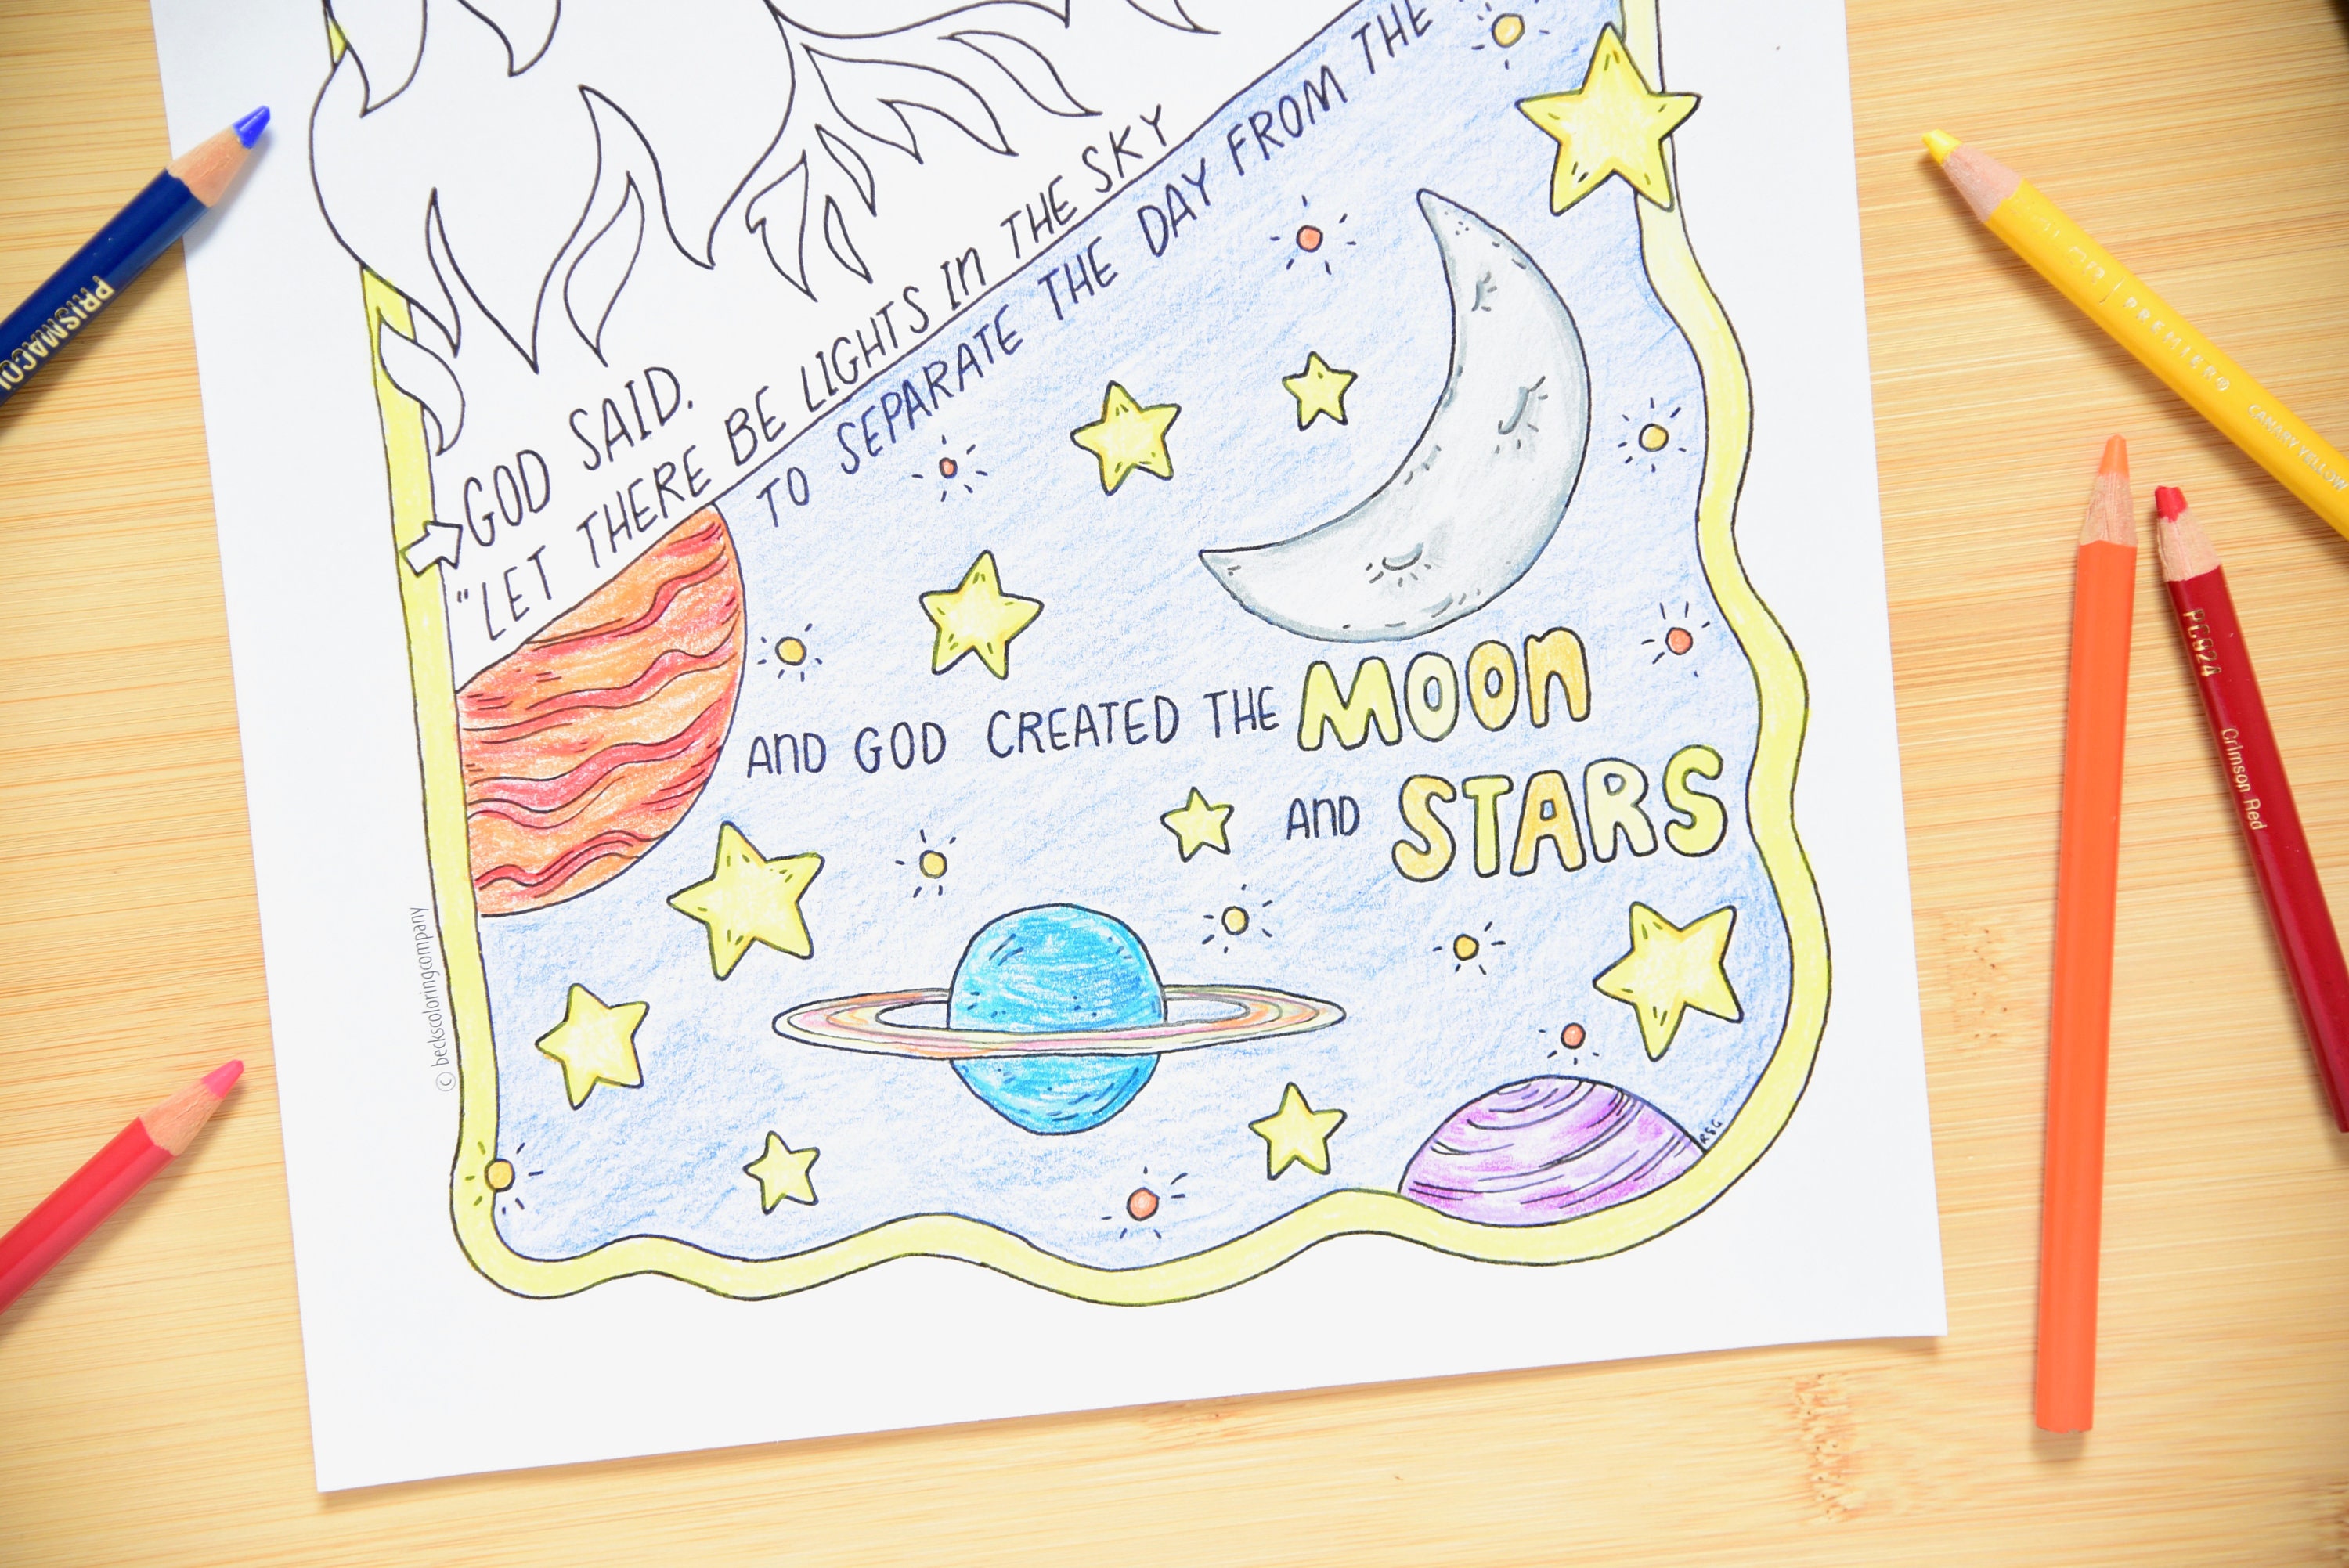 GOD SAID.
"LET THERE BE LIGHTS In THE SKY
TO SEPARATE THE DAY FROM THE
AnD GOD CREATED THE MOOn
AnD STARS
© beckscoloringcompany
RSG
PRISMACOL
PREMIER®
CANARY YELLOW
PC924
Crimson Red